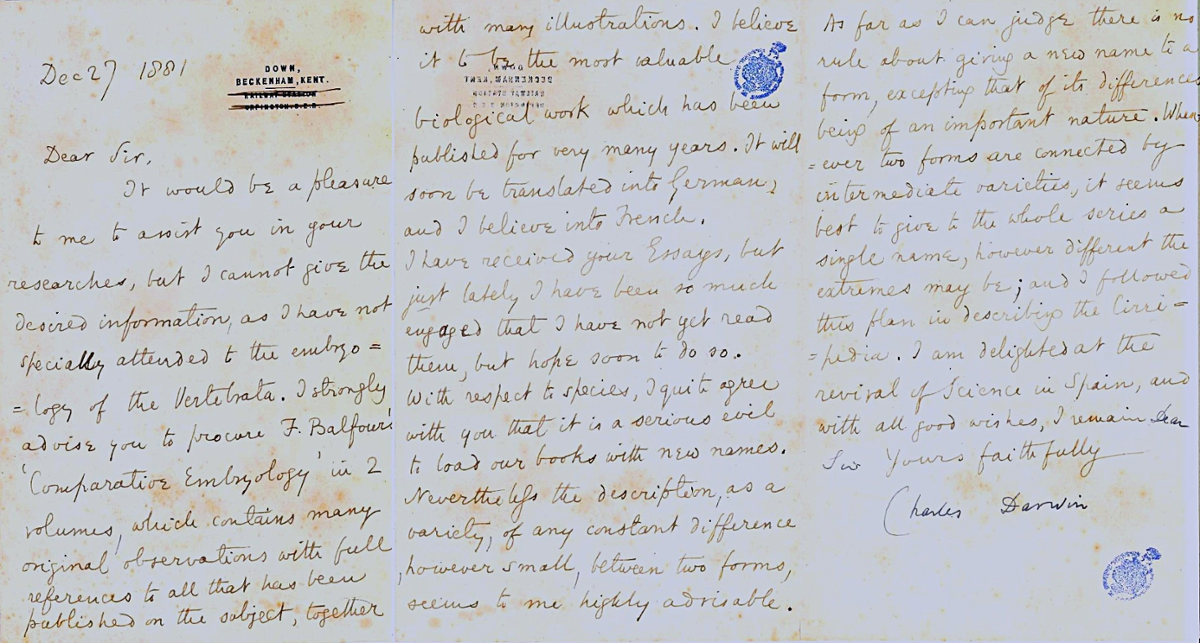 Dec 27 1881
DOWN,
BECKENHAM, KENT.
RAILWAY STATION
ORPINGTON. S.E.R.
Dear Sir,
It would be a pleasure
to me to assist you in your
researches, but I cannot give the
desired information, as I have not
specially attended to the embryo=
=logy of the Vertebrata. I strongly
advise you to procure F. Balfour's
'Comparative Embryology' in 2
volumes, which contains many
original observations with full
references to all that has been
published on the subject, together
with many illustrations. I believe
it to be the most valuable
biological work which has been
published for very many years. It will
soon be translated into German,
and I believe into French.
I have received your Essays, but
just lately I have been so much
engaged that I have not yet read
them, but hope soon to do so.
With respect to species, I quite agree
with you that it is a serious evil
to load our books with new names.
Nevertheless the description, as a
variety, of any constant difference
, however small, between two forms,
seems to me highly advisable.
As far as I can judge there is no
rule about giving a new name to a
form, excepting that of its difference
being of an important nature. When=
=ever two forms are connected by
intermediate varieties, it seems
best to give to the whole series a
single name, however different the
extremes may be; and I followed
this plan in describing the Cirri=
=pedia. I am delighted at the
revival of Science in Spain, and
with all good wishes, I remain Dear
Sir Yours faithfully
Charles Darwin